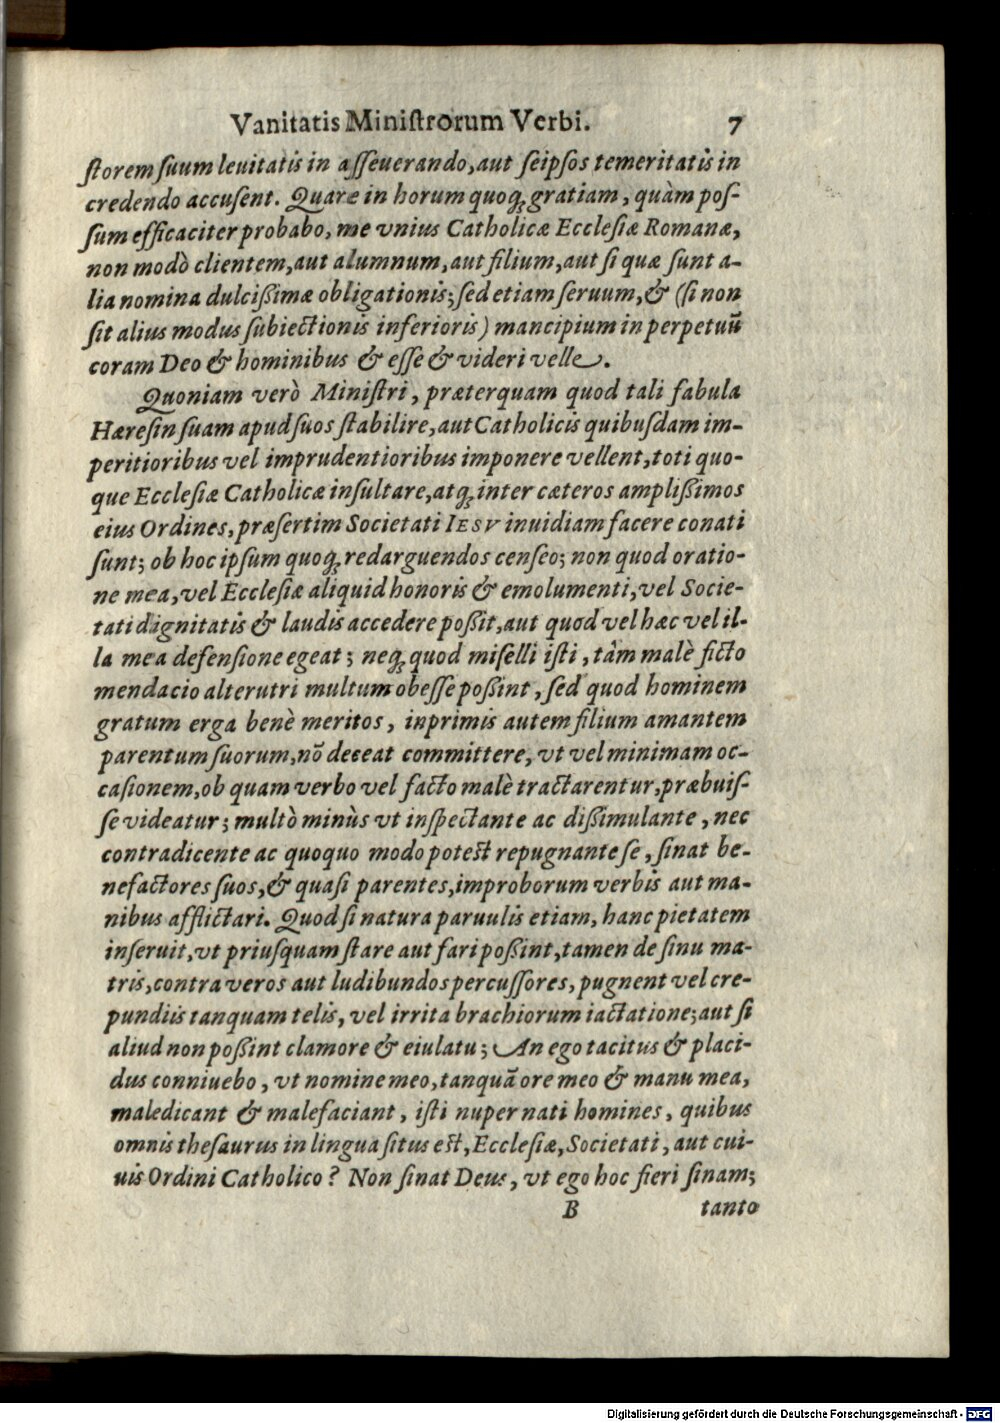 Vanitatis Miniſtrorum Verbi. 7
ſtorem ſuum leuitatis in aſſeuerando, aut ſeipſos temeritatis in
credendo accuſent. Quare in horum quoq; gratiam, quàm poſ-
ſum efficaciter probabo, me vnius Catholicæ Eccleſiæ Romanæ,
non modò clientem, aut alumnum, aut filium, aut ſi quæ ſunt a-
lia nomina dulcißimæ obligationis; ſed etiam ſeruum, & (ſi non
ſit alius modus ſubiectionis inferioris) mancipium in perpetuũ
coram Deo & hominibus & eſſe & videri velle.
Quoniam verò Miniſtri, præterquam quod tali fabula
Hæreſin ſuam apud ſuos ſtabilire, aut Catholicis quibuſdam im-
peritioribus vel imprudentioribus imponere vellent, toti quo-
que Eccleſiæ Catholicæ inſultare, atq; inter cæteros amplißimos
eius Ordines, præſertim Societati IESV inuidiam facere conati
ſunt; ob hoc ipſum quoq; redarguendos cenſeo; non quod oratio-
ne mea, vel Eccleſiæ aliquid honoris & emolumenti, vel Socie-
tati dignitatis & laudis accedere poßit, aut quod vel hæc vel il-
la mea defenſione egeat; neq; quod miſelli iſti, tàm malè ficto
mendacio alterutri multum obeſſe poßint, ſed quod hominem
gratum erga benè meritos, inprimis autem filium amantem
parentum ſuorum, nõ deceat committere, vt vel minimam oc-
caſionem, ob quam verbo vel facto malè tractarentur, præbuiſ-
ſe videatur; multò minùs vt inſpectante ac dißimulante, nec
contradicente ac quoquo modo poteſt repugnante ſe, ſinat be-
nefactores ſuos, & quaſi parentes, improborum verbis aut ma-
nibus afflictari. Quod ſi natura paruulis etiam, hanc pietatem
inſeruit, vt priuſquam ſtare aut fari poßint, tamen de ſinu ma-
tris, contra veros aut ludibundos percuſſores, pugnent vel cre-
pundiis tanquam telis, vel irrita brachiorum iactatione; aut ſi
aliud non poßint clamore & eiulatu; An ego tacitus & placi-
dus conniuebo, vt nomine meo, tanquã ore meo & manu mea,
maledicant & malefaciant, iſti nuper nati homines, quibus
omnis theſaurus in lingua ſitus eſt, Eccleſiæ, Societati, aut cui-
uis Ordini Catholico? Non ſinat Deus, vt ego hoc fieri ſinam;
B tanto
Digitalisierung gefördert durch die Deutsche Forschungsgemeinschaft - DFG